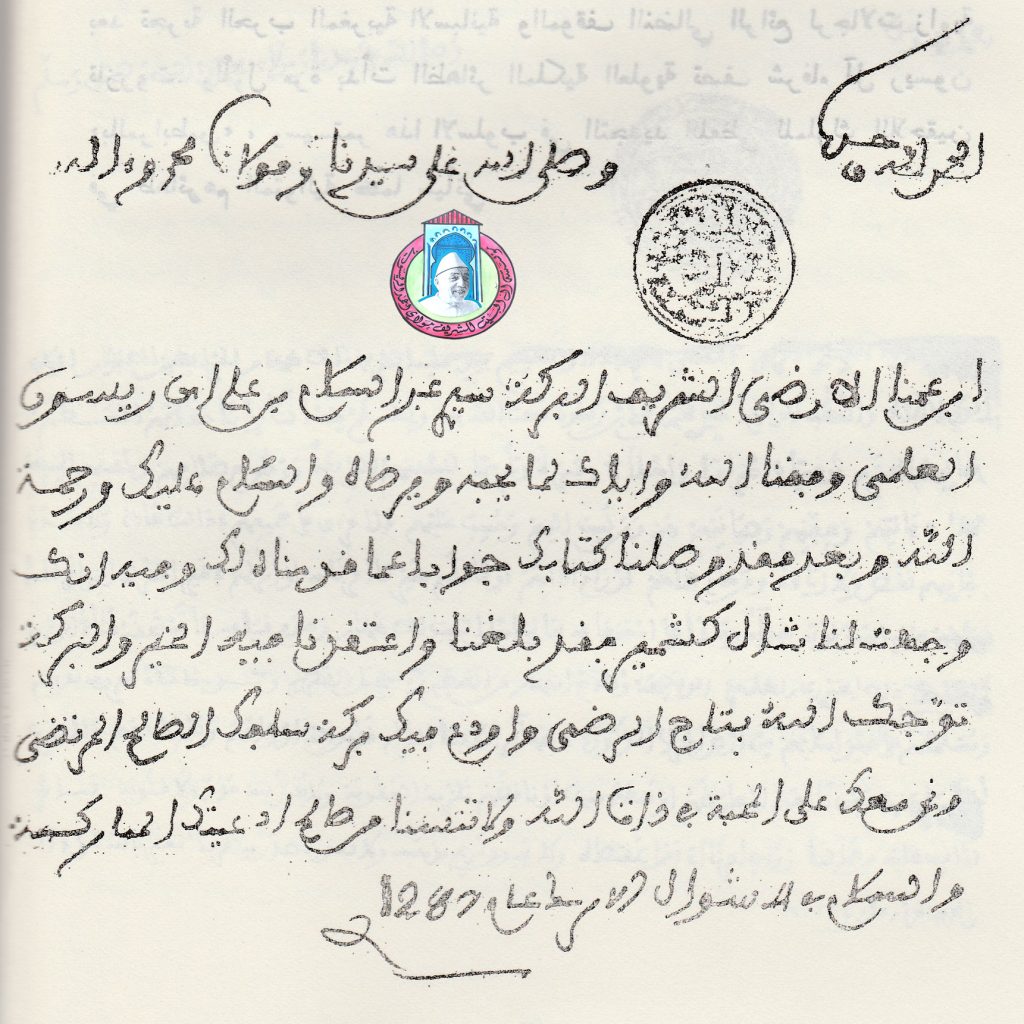 الحمد لله وحده
وصلى الله على سيدنا ومولانا محمد وءاله
ابن عمنا الارضى الشريف البركة سيدي عبد السلام بن علي ابن ريسون
العلمي وفقنا الله واياك لما يحبه ويرضاه والسلام عليك ورحمة
الله وبعد فقد وصلنا كتابك جوابا عما قدمناه لك وفيه انك
وجهت لنا شال كشمير فقد بلغنا واعتقدنا فيه الخير والبركة
توجك الله بتاج الرضى واودع فيك بركة سلفك الصالح المرتضى
ونحن معك على المحبة في ذات الله ولا تنسنا من صالح ادعيتك المباركة
والسلام في شوال الابرك عام 1287